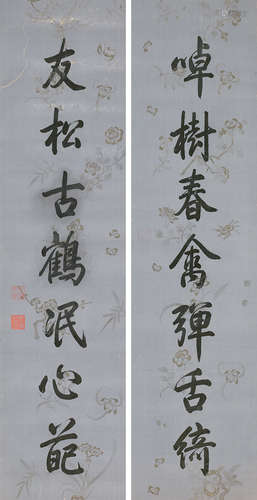 啅樹春禽彈舌綺
友松古鶴泯心葩